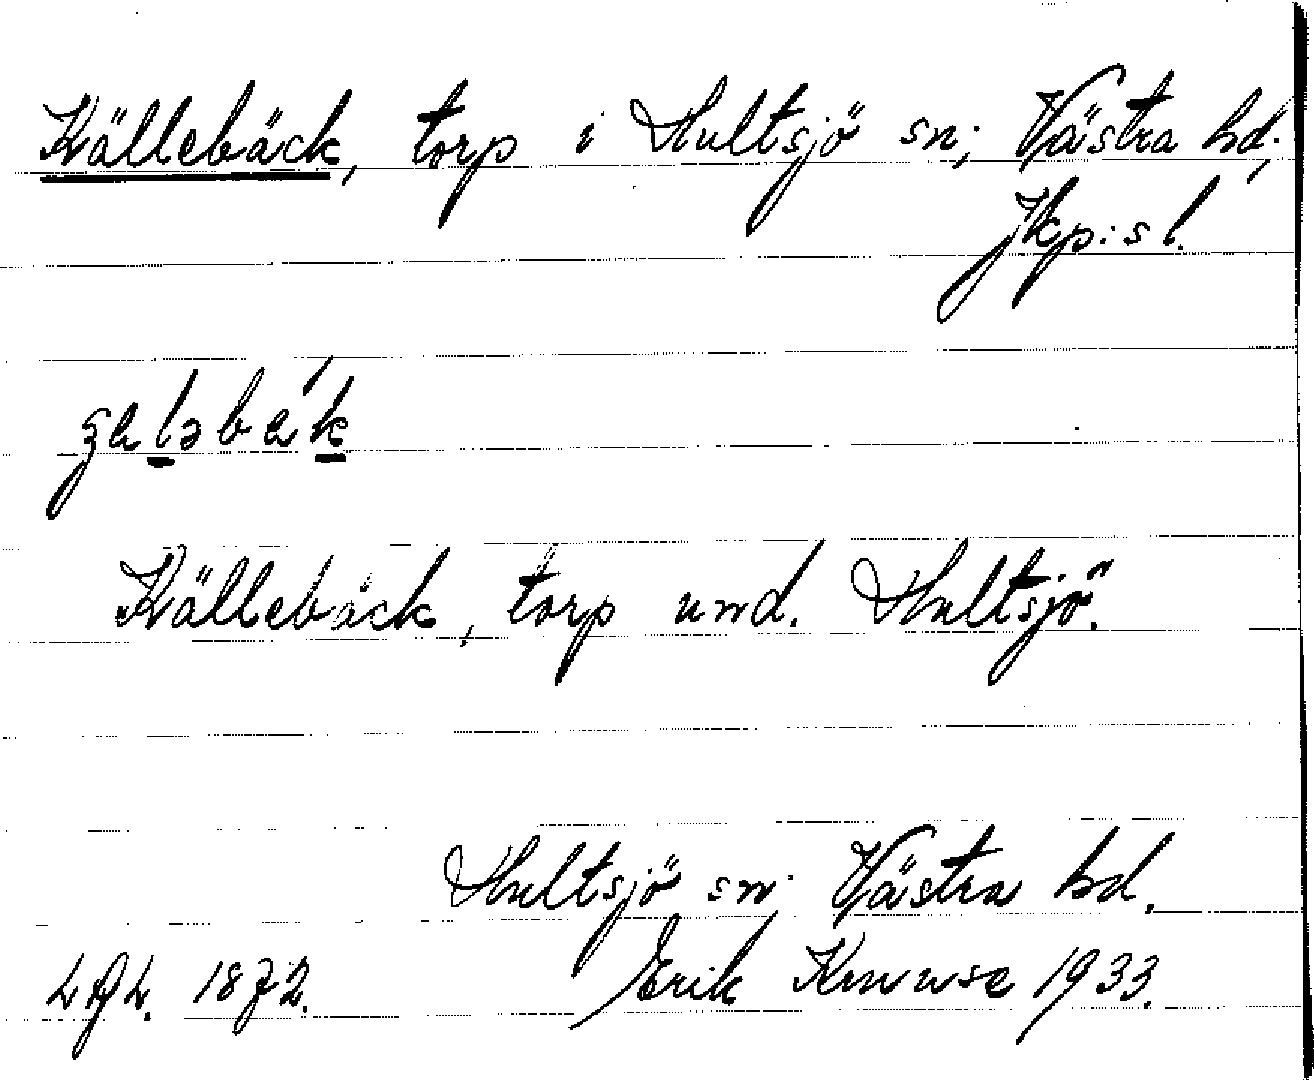 Källebäck, torp i Hultsjö sn; Västra hd;
Jkp:s l.
Källebäck, torp und. Hultsjö.
Hultsjö sn. Västra hd.
1872. Erik Kruuse 1933.